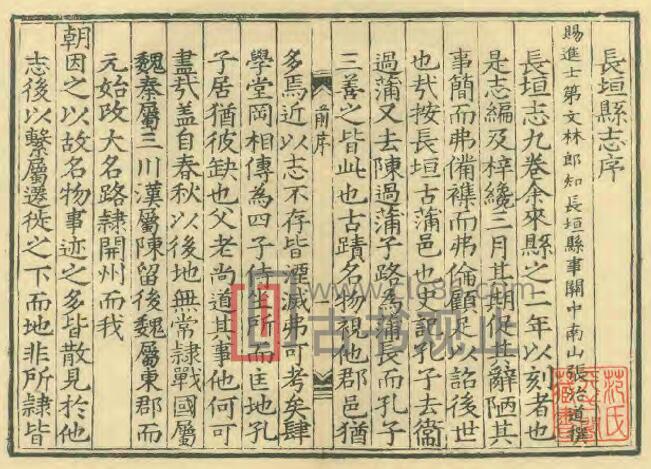 長垣縣志序
賜進士第文林郎知長垣縣事關中南山張治道撰
長垣志九卷余來縣之二年以刻者也
是志編及梓纔三月其期促其辭陋其
事簡而弗備襍而弗倫顧足以詔後世
也㢤按長垣古蒲邑也史記孔子去衞
過蒲又去陳過蒲子路為蒲長而孔子
三善之皆此也古蹟名物視他郡邑猶
前序
一
多焉近以志不存皆堙滅弗可考矣肆
學堂岡相傳為四子侍坐所而匡地孔
子居猶彼缺也父老尚道其事他何可
盡㢤蓋自春秋以後地無常隸戰國屬
魏秦屬三川漢屬陳留後魏屬東郡而
元始改大名路隸開州而我
朝因之以故名物事迹之多皆散見於他
志後以繫屬遷徙之下而地非所隸皆
范氏
藏書
www.zlc86.com
古书观止